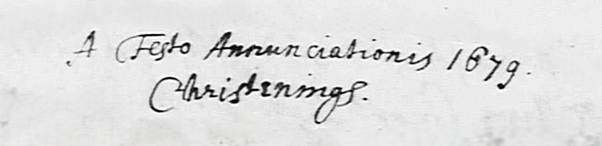 A Festo Annunciationis 1679.
Christnings.